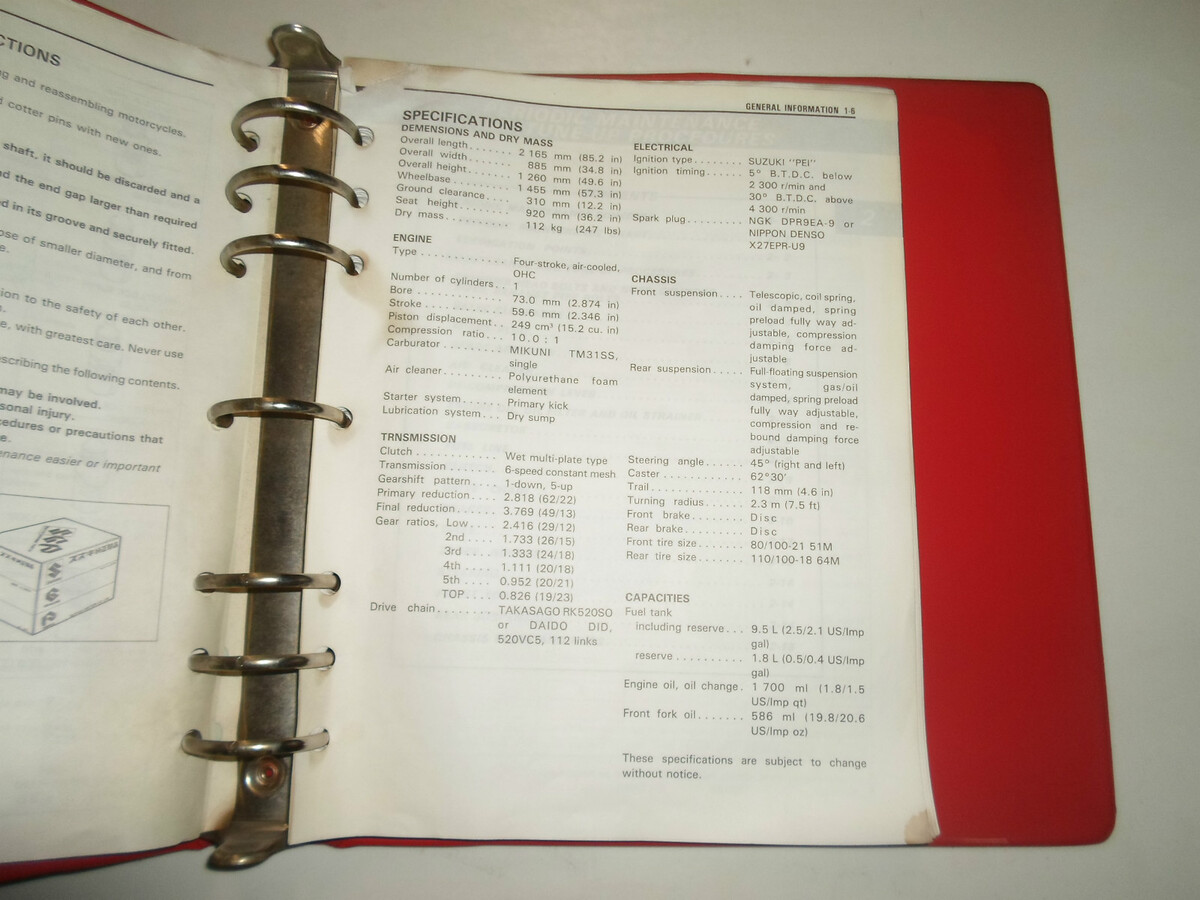 CTIONS
g and reassembling motorcycles.
d cotter pins with new ones.
shaft, it should be discarded and a
nd the end gap larger than required
d in its groove and securely fitted.
ose of smaller diameter, and from
e.
ion to the safety of each other.
e, with greatest care. Never use
scribing the following contents.
may be involved.
sonal injury.
cedures or precautions that
e.
enance easier or important
GENERAL INFORMATION 1-6
SPECIFICATIONS
DEMENSIONS AND DRY MASS
Overall length....... 2 165 mm (85.2 in)
Overall width....... 885 mm (34.8 in)
Overall height....... 1 260 mm (49.6 in)
Wheelbase......... 1 455 mm (57.3 in)
Ground clearance.... 310 mm (12.2 in)
Seat height........ 920 mm (36.2 in)
Dry mass.......... 112 kg (247 lbs)
ENGINE
Type ............ Four-stroke, air-cooled,
OHC
Number of cylinders.. 1
Bore ............ 73.0 mm (2.874 in)
Stroke ........... 59.6 mm (2.346 in)
Piston displacement.. 249 cm³ (15.2 cu. in)
Compression ratio... 10.0 : 1
Carburator ......... MIKUNI TM31SS,
single
Air cleaner......... Polyurethane foam
element
Starter system...... Primary kick
Lubrication system... Dry sump
TRNSMISSION
Clutch ............ Wet multi-plate type
Transmission ....... 6-speed constant mesh
Gearshift pattern.... 1-down, 5-up
Primary reduction.... 2.818 (62/22)
Final reduction...... 3.769 (49/13)
Gear ratios, Low.... 2.416 (29/12)
2nd .... 1.733 (26/15)
3rd .... 1.333 (24/18)
4th .... 1.111 (20/18)
5th .... 0.952 (20/21)
TOP.... 0.826 (19/23)
Drive chain........ TAKASAGO RK520SO
or DAIDO DID,
520VC5, 112 links
ELECTRICAL
Ignition type........ SUZUKI "PEI"
Ignition timing...... 5° B.T.D.C. below
2 300 r/min and
30° B.T.D.C. above
4 300 r/min
Spark plug......... NGK DPR9EA-9 or
NIPPON DENSO
X27EPR-U9
CHASSIS
Front suspension.... Telescopic, coil spring,
oil damped, spring
preload fully way ad-
justable, compression
damping force ad-
justable
Rear suspension..... Full-floating suspension
system, gas/oil
damped, spring preload
fully way adjustable,
compression and re-
bound damping force
adjustable
Steering angle...... 45° (right and left)
Caster ............ 62°30'
Trail.............. 118 mm (4.6 in)
Turning radius...... 2.3 m (7.5 ft)
Front brake........ Disc
Rear brake......... Disc
Front tire size....... 80/100-21 51M
Rear tire size....... 110/100-18 64M
CAPACITIES
Fuel tank
including reserve... 9.5 L (2.5/2.1 US/Imp
gal)
reserve .......... 1.8 L (0.5/0.4 US/Imp
gal)
Engine oil, oil change. 1 700 ml (1.8/1.5
US/Imp qt)
Front fork oil....... 586 ml (19.8/20.6
US/Imp oz)
These specifications are subject to change
without notice.